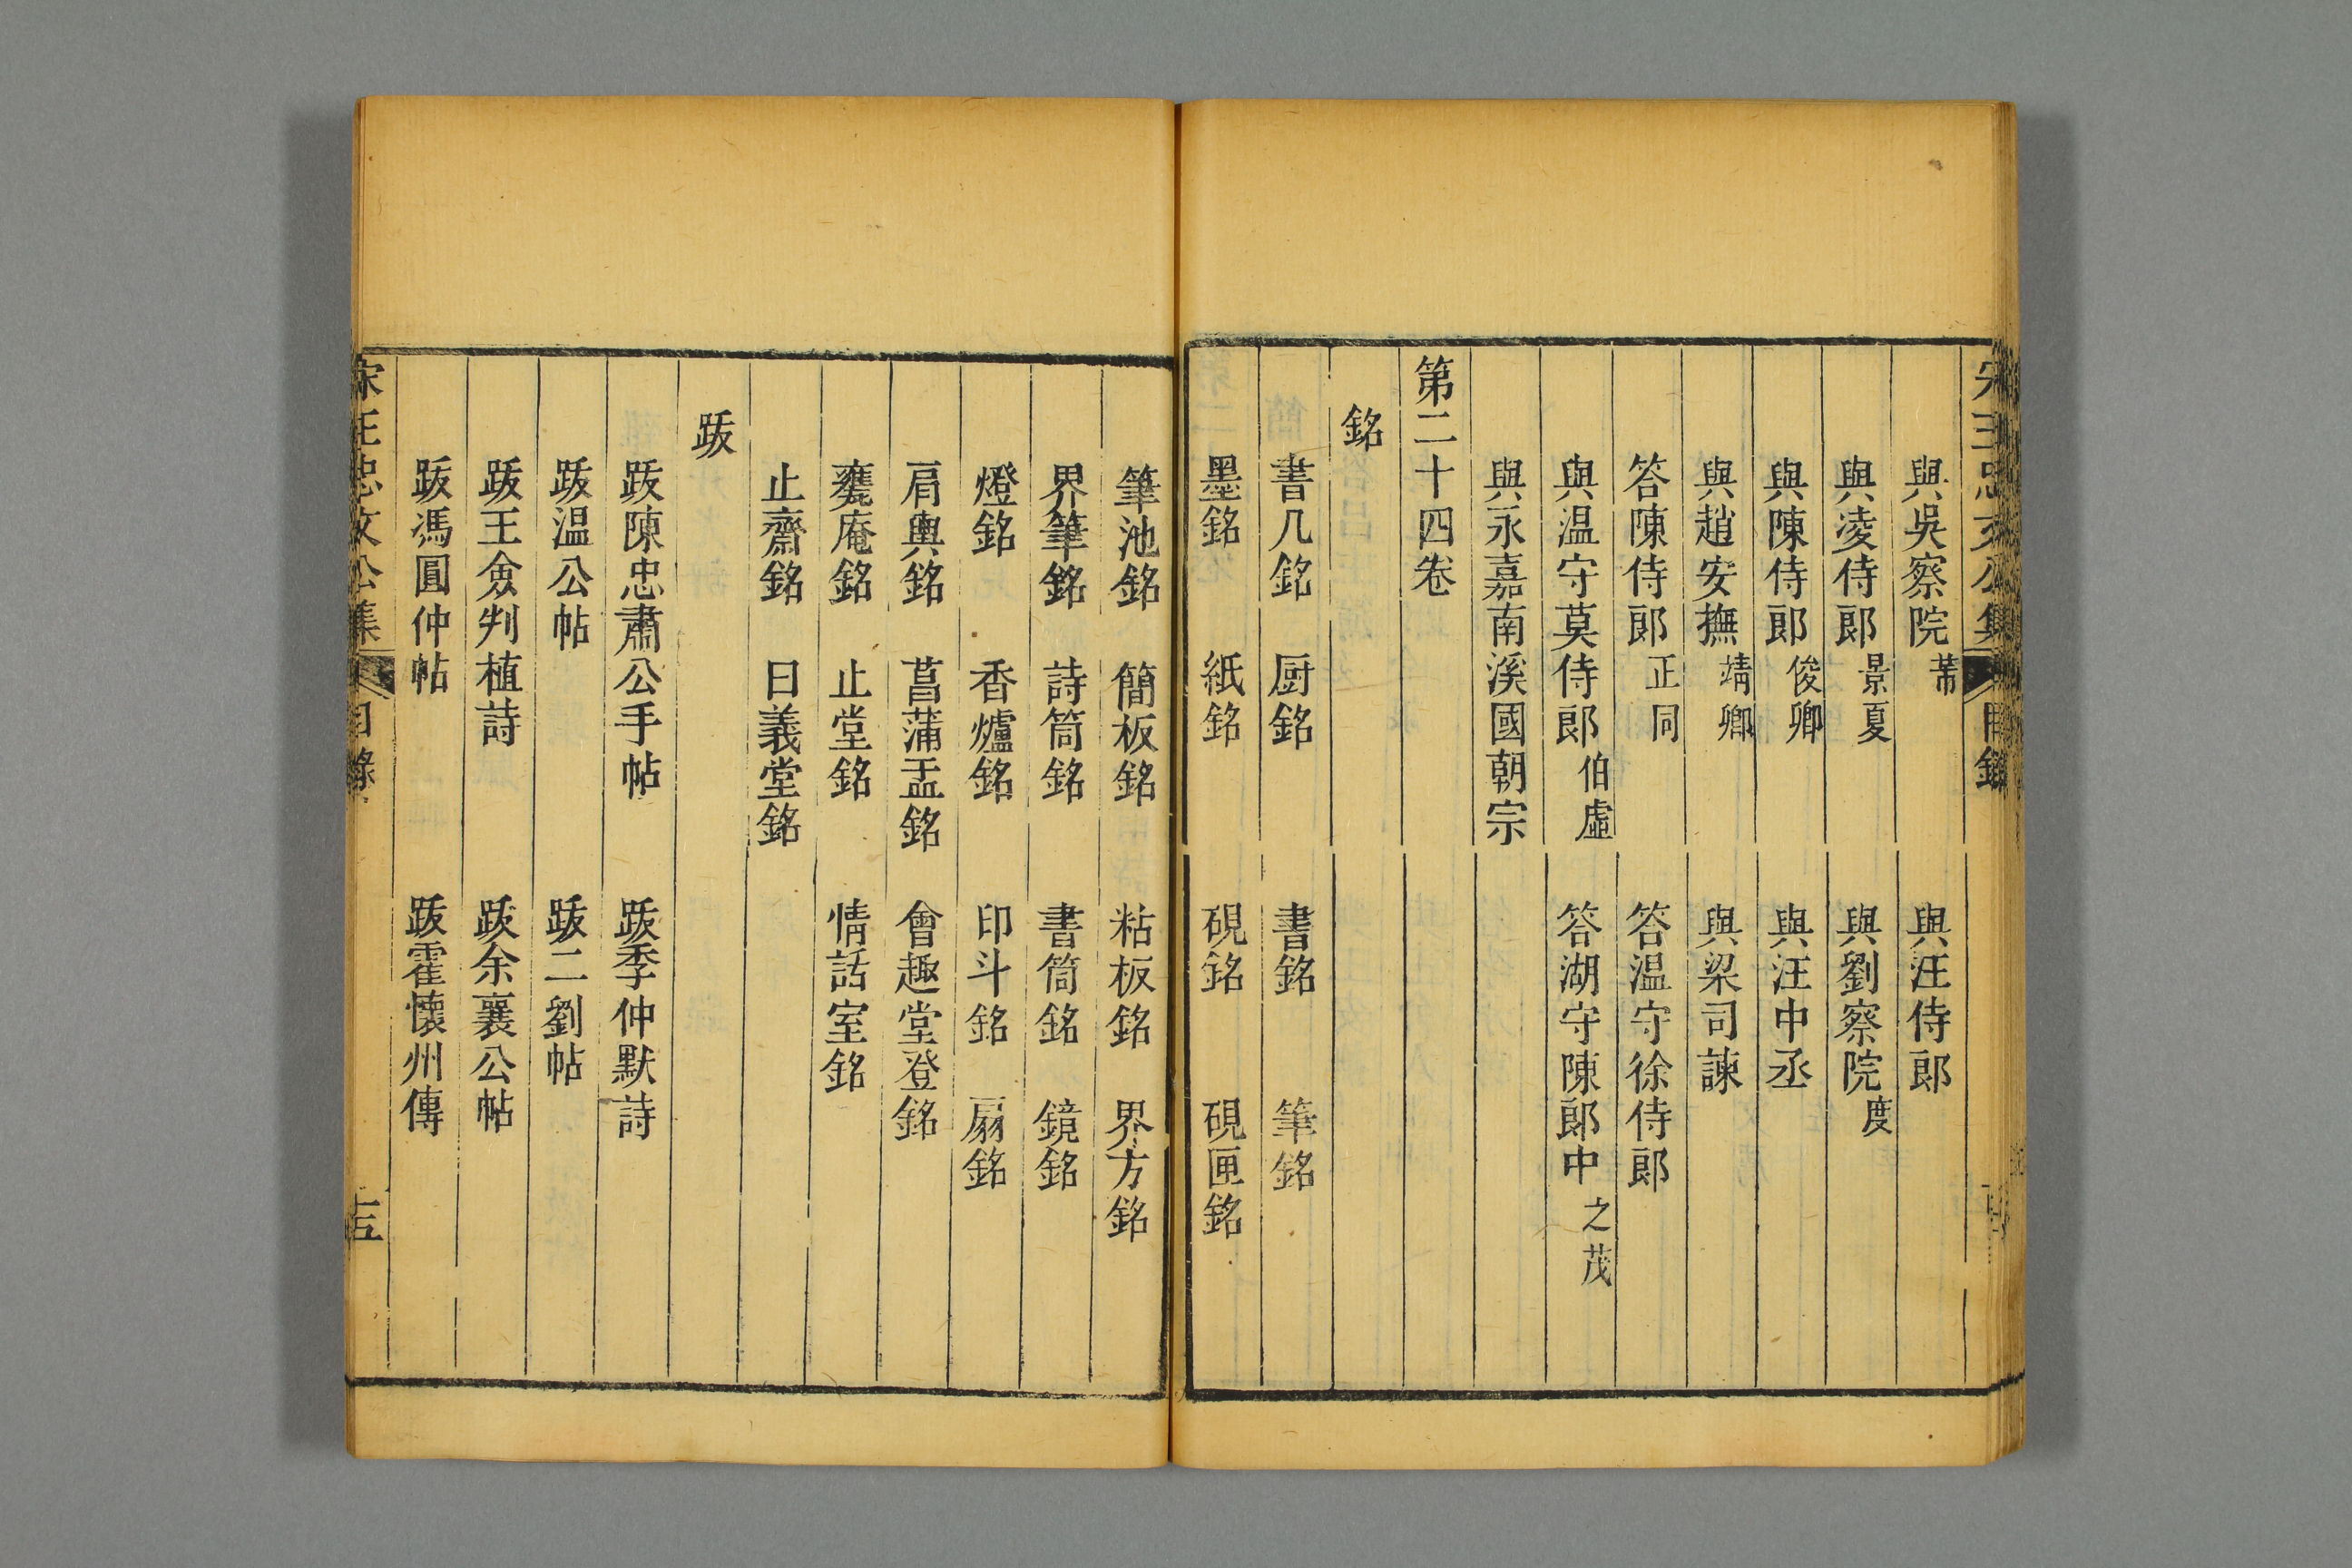 宋王忠文公集 目錄
與吳察院芾 與汪侍郎
與凌侍郎景夏 與劉察院度
與陳侍郎俊卿 與汪中丞
與趙安撫靖卿 與梁司諫
答陳侍郎正同 答温守徐侍郎
與温守莫侍郎伯虛 答湖守陳郎中之茂
與永嘉南溪國朝宗
第二十四卷
銘
書几銘 厨銘 書銘 筆銘
墨銘 紙銘 硯銘 硯匣銘
筆池銘 簡板銘 粘板銘 界方銘
界筆銘 詩筒銘 書筒銘 鏡銘
燈銘 香爐銘 印斗銘 扇銘
肩輿銘 菖蒲盂銘 會趣堂登銘
甕庵銘 止堂銘 情話室銘
止齋銘 曰義堂銘
跋
跋陳忠肅公手帖 跋季仲默詩
跋温公帖 跋二劉帖
跋王僉判植詩 跋余襄公帖
跋馮圓仲帖 跋霍懷州傳
宋王忠文公集 目錄 十五